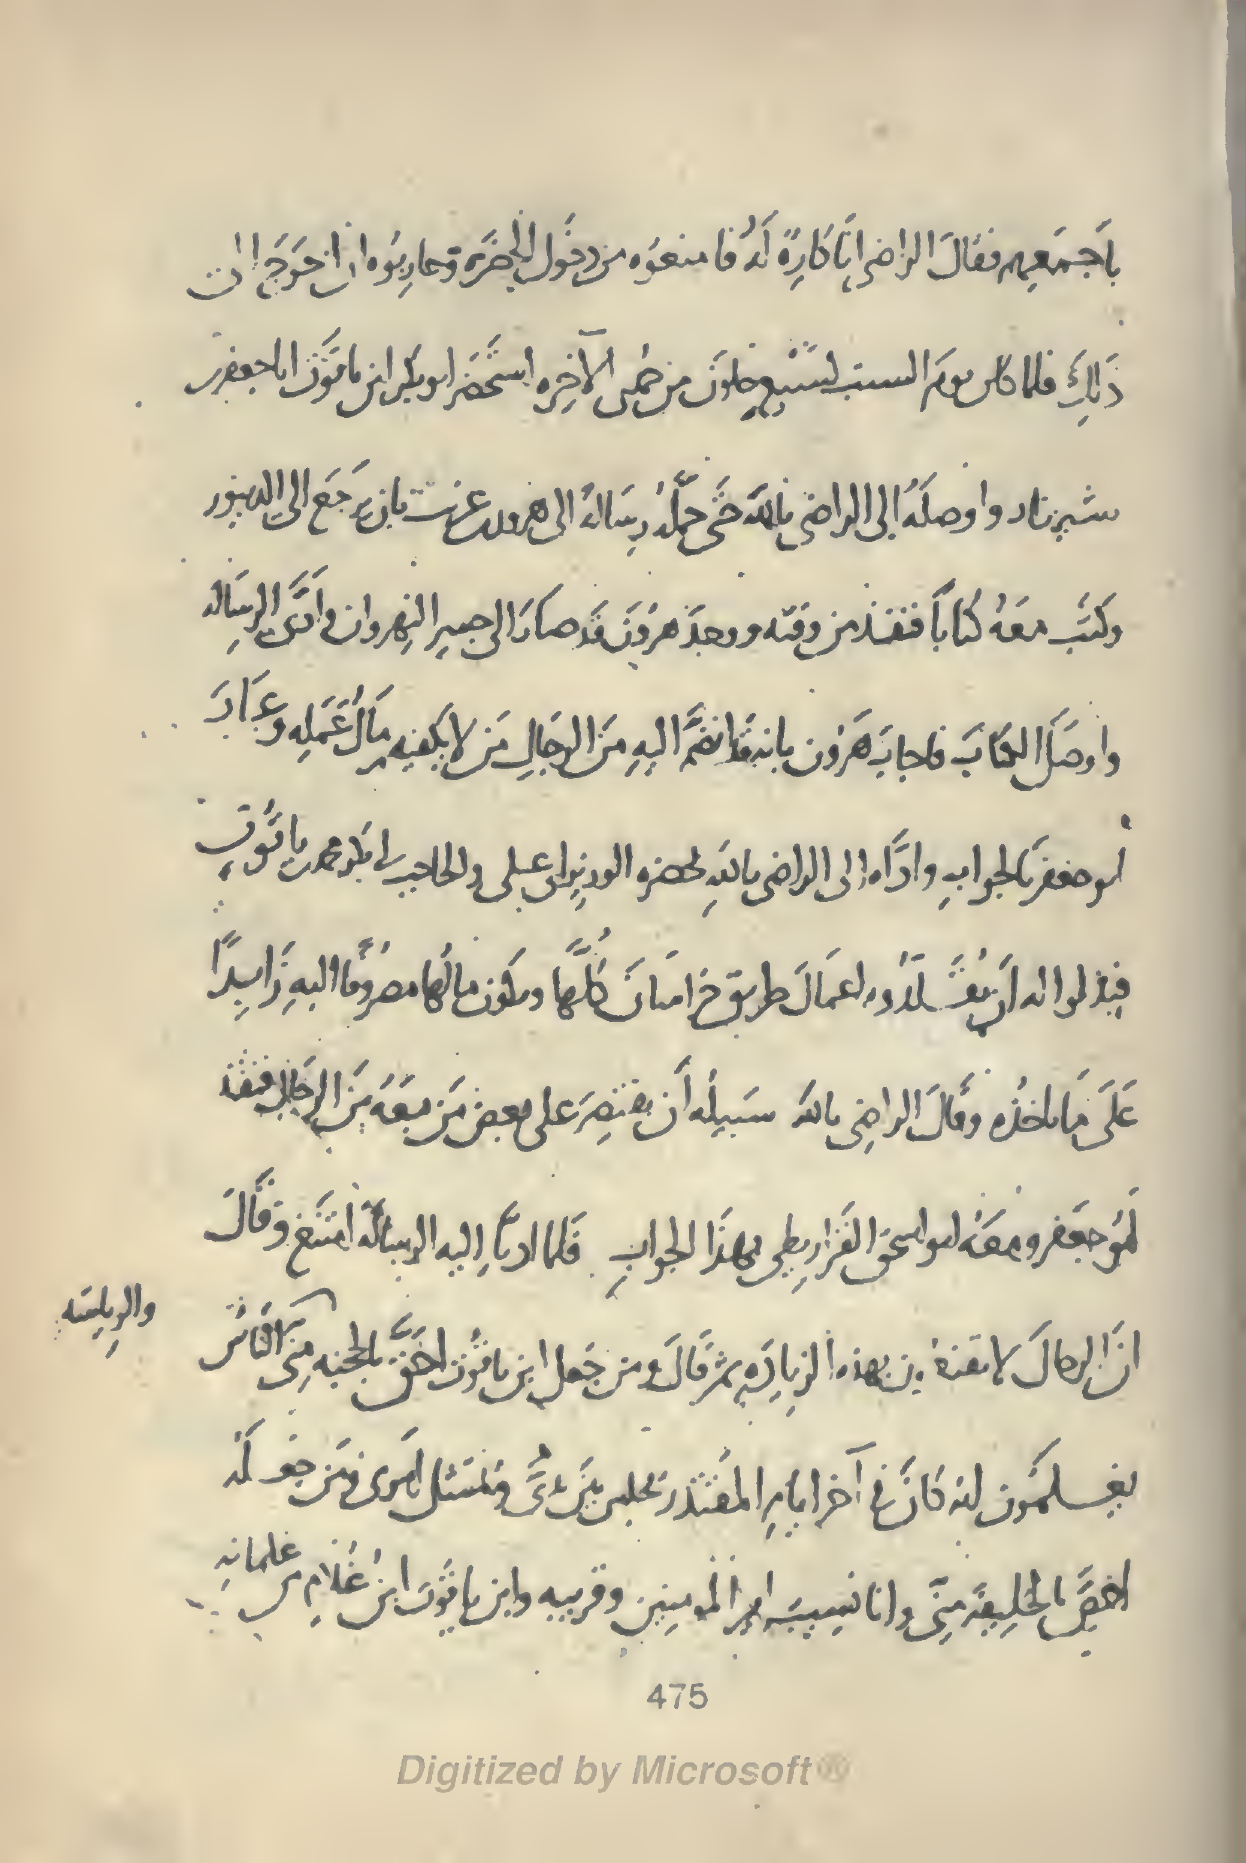 باجمعهم فقال الراضى انا كاره له فامنعوه من دخول الحضرة وحاربوه ان احوج الى
ذلك فلما كان يوم السبت لسبع خلون من جمدى الآخره استحضر ابو بكر ابن ياقوت ابا جعفر بن
شيرزاد واوصله إلى الراضى بالله حتى حمله رساله الى هرون بن غريب بان يرجع الى الدينور
وكتب معه كتاباً فنفذ من وقته ووجد هرون قد صار الى جسر النهروان وادّى الرساله
واوصل الكتاب فاجاب هرون بانه قد انضم اليه من الرجال من لا يكفيه مال عمله وعاد
ابو جعفر بالجواب وادّاه إلى الراضى بالله بحضره الوزير ابى على والحاجب ابى بكر محمد بن ياقوت
فبذلوا له أن يقلدوه اعمال طريق خراسان كلّها ويكون مالها مصروفا اليه زايدًا
على ما ياخذه وقال الراضى بالله سبيله أن يقتصر على بعض من معه من الرجال فنفذ
ابو جعفر ومعه ابو اسحق القراريطى بهذا الجواب فلما ادّيا إليه الرسالة امتنع وقال
انّ الرجال لا يقنعون بهذه الزياده ثم قال ومن جعل ابن ياقوت احقّ بالحجبه منى الناس
والرياسه
يعلمون انه كان فى آخر ايام المقتدر يجلس بين يدىّ ويمتثل امرى ومن جعله
اخصّ بالخليفة منّى وانا نسيب امير المومنين وقريبه وابن ياقوت ابن غلام من غلمانه
475
Digitized by Microsoft®